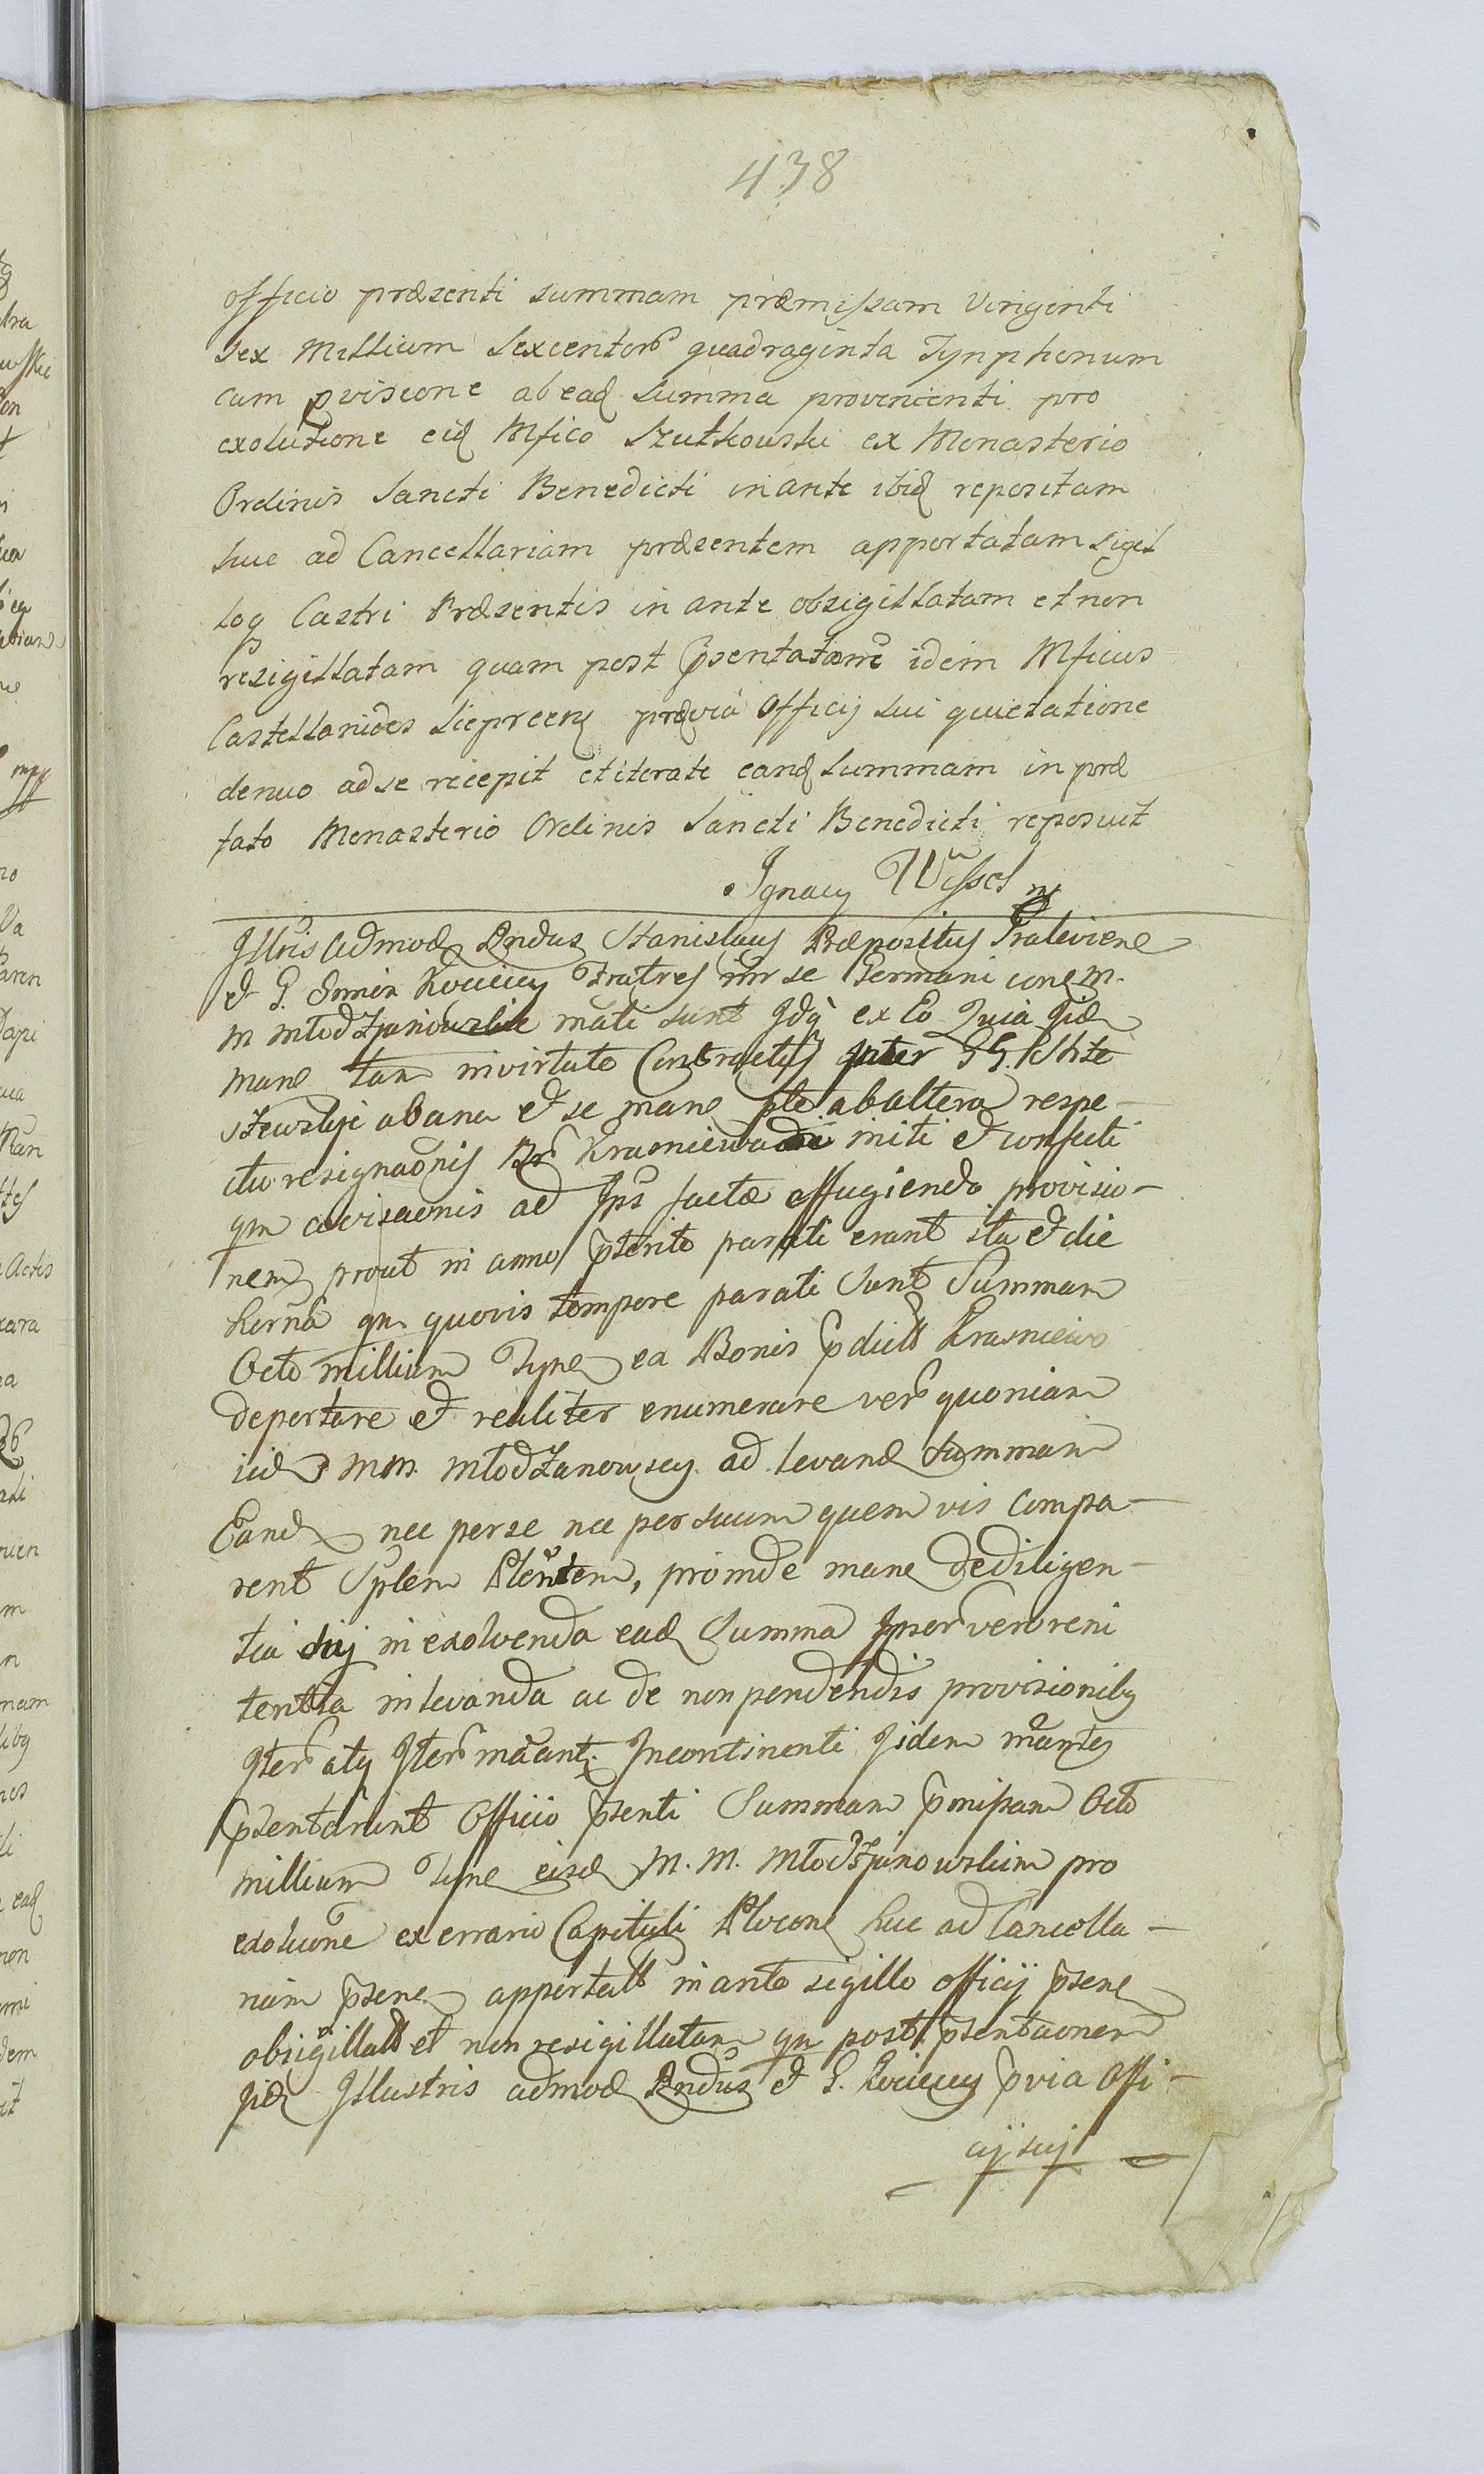 438
officio præsenti summam præmissam Viriginti
sex Millium Sexcentor quadraginta Tynphonum
cum pvisione ab ead summa provenienti pro
exolutione eid Mfico Szutkowski ex Monasterio
Ordinis Sancti Benedicti in ante ibid repositam
huc ad Cancellariam præsentem apportatam sigil
loq Castri Præsentis in ante obsigillatam et non
resigillatam quam post psentatam idem Mficus
Castellanides Sieprcen prævia Officij sui quietatione
denuo ad se recepit et iterate eand summam in præ
fato Monasterio Ordinis Sancti Benedicti reposuit
Ignacy Wessel
Illris Admod Rndus Stanislaus Præpositus
& G. Kociccy Fratres inr se Germani con M.
M Młodzianowskie mati sunt Idq ex Eo Quia Iid
mane tam in virtute Contractus inter GG.
ab una & se mane pte ab altera respe-
ctu resignaonis Br Krasniewa initi & confecti
qm avisaonis ad Ips factæ effugiendo provisio-
nem prout in anno pterito parati erant ita & die
herna qn quovis tempore parati sunt Summam
Octo millium Tynf ex Bonis pdict Krasniewo
deportare & realiter enumerare ver quoniam
iid MM. Młodzianowscy ad levand summam
Eand nec per se nec per suum quem vis compa-
rent Splem Plentem, proinde mane de diligen-
tia suj in exolvenda ead Summa Ipsor vero reni
tentia in levanda ac de non pendendis provisionibq
Iter atq Iter mãant. Incontinenti Iidem mantes
psentarunt Officio psenti Summam pmissam Octo
millium Tynf eisd M. M. Młodzianowskim pro
exoluone ex errario Capituli Plocen huc ad Cancella-
riam psene apportat in ante sigillo officij psene
obsigillat et non resigillatam qn post psentaonem
Iid Illustris admod Rndus & G. Kociccy pvia Offi-
cij suj